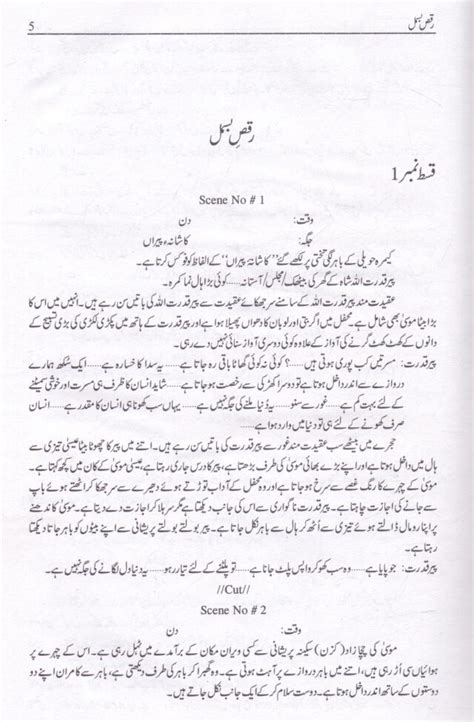 رقص بسمل 5
رقص بسمل
قسط نمبر 1
Scene No # 1
وقت: دن
جگہ: کاشانہء پیراں
کیمرہ حویلی کے باہر لگی تختی پر لکھے گئے ”کاشانہ پیراں“ کے الفاظ کو فوکس کرتا ہے۔
پیر قدرت اللہ شاہ کے گھر کی بیٹھک/مجلس/آستانہ......کوئی بڑا ہال نما کمرہ۔
عقیدت مند پیر قدرت اللہ کے سامنے سر جھکائے عقیدت سے پیر قدرت اللہ کی باتیں سن رہے ہیں۔ انہیں میں اس کا
بڑا بیٹا موسیٰ بھی شامل ہے۔ محفل میں اگر بتی اور لوبان کا دھواں پھیلا ہوا ہے اور پیر قدرت کے ہاتھ میں پکڑی لکڑی کی بڑی تسبیح کے
دانوں کے کھٹ کھٹ گرنے کی آواز کے علاوہ کوئی دوسری آواز سنائی نہیں دے رہی۔
پیر قدرت: مسرتیں کب پوری ہوتی ہیں......؟ کوئی نہ کوئی گھاٹا باقی رہ جاتا ہے......یہ سدا کا خسارہ ہے......ایک سکھ ہمارے
دروازے سے اندر داخل ہوتا ہے تو دوسرا کھڑکی سے رخصت ہو جاتا ہے......شاید انسان کا ظرف ہی مسرت اور خوشی سمیٹنے
کے لئے بہت کم ہے......غور سے سنو......یہ دُنیا ملنے کی جگہ نہیں ہے......یہاں سب کھونا ہی انسان کا مقدر ہے......انسان
سب کھونے کے لئے ہی تو دُنیا میں وارد ہوا ہے۔
حجرے میں بیٹھے سب عقیدت مند غور سے پیر قدرت کی باتیں سن رہے ہیں۔ اتنے میں پیر کا چھوٹا بیٹا عیسیٰ تیزی سے
ہال میں داخل ہوتا ہے اور اپنے بڑے بھائی موسیٰ کی طرف بڑھتا ہے، پیر کا درس جاری رہتا ہے، عیسیٰ موسیٰ کے کان میں کچھ کہتا ہے۔
موسیٰ کے چہرے کا رنگ غصے سے سرخ ہو جاتا ہے اور وہ محفل کے آداب توڑتے ہوئے دھیرے سے سر جھکا کر اٹھتے ہوئے باپ
سے جانے کی اجازت چاہتا ہے۔ پیر قدرت ناگواری سے اس کی جانب دیکھتا ہے مگر سر ہلا کر اجازت دے دیتا ہے۔ موسیٰ کاندھے
پر اپنا رومال ڈالتے ہوئے تیزی سے اُٹھ کر ہال سے باہر نکل جاتا ہے۔ پیر بولتے بولتے پریشانی سے اپنے بیٹوں کو باہر جاتے
دیکھتا رہتا ہے۔
پیر قدرت: جو پایا ہے......وہ سب کھو کر واپس پلٹ جانا ہے......تو پلٹنے کے لئے تیار رہو......یہ دنیا دل لگانے کی جگہ نہیں ہے۔
//Cut//
Scene No # 2
وقت: دن
موسیٰ کی چچا زاد (کزن) سکینہ پریشانی سے کسی ویران مکان کے برآمدے میں ٹہل رہی ہے۔ اس کے چہرے پر
ہوائیاں سی اُڑ رہی ہیں، اتنے میں باہر دروازے پر آہٹ ہوتی ہے۔ وہ گھبرا کر باہر کی طرف دیکھتی ہے، باہر سے کامران اپنے دو
دوستوں کے ساتھ اندر داخل ہوتا ہے۔ دوست سلام کر کے ایک جانب نکل جاتے ہیں۔